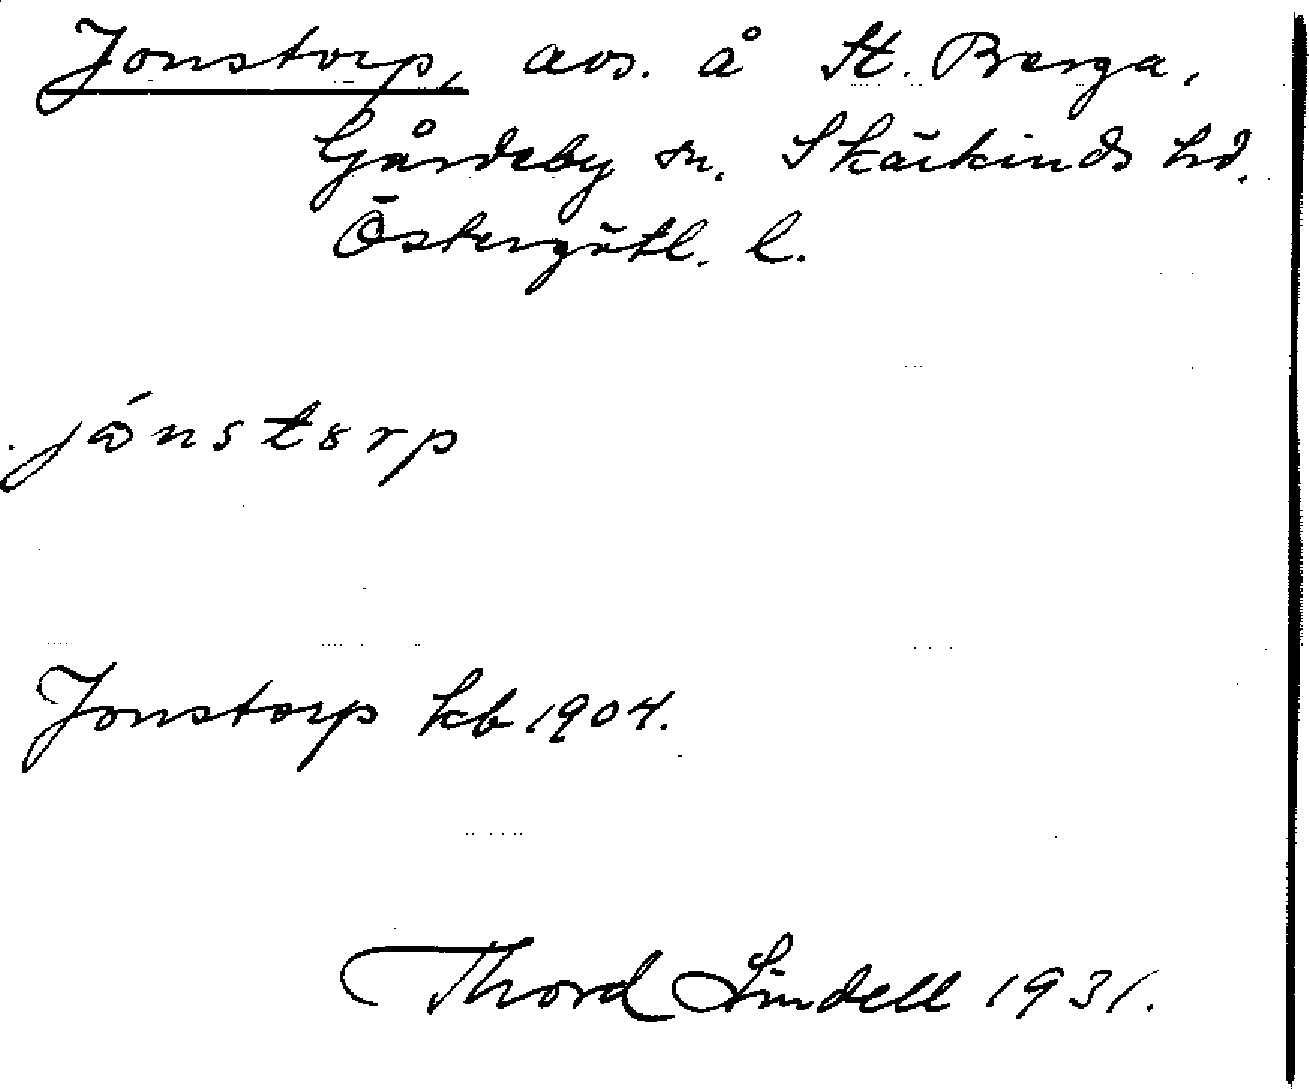 Jonstorp, avs. å St. Berga,
Gårdeby sn. Skärkinds hd.
Östergötl. l.
jónstorp
Jonstorp kb 1904.
Thord Lindell 1931.